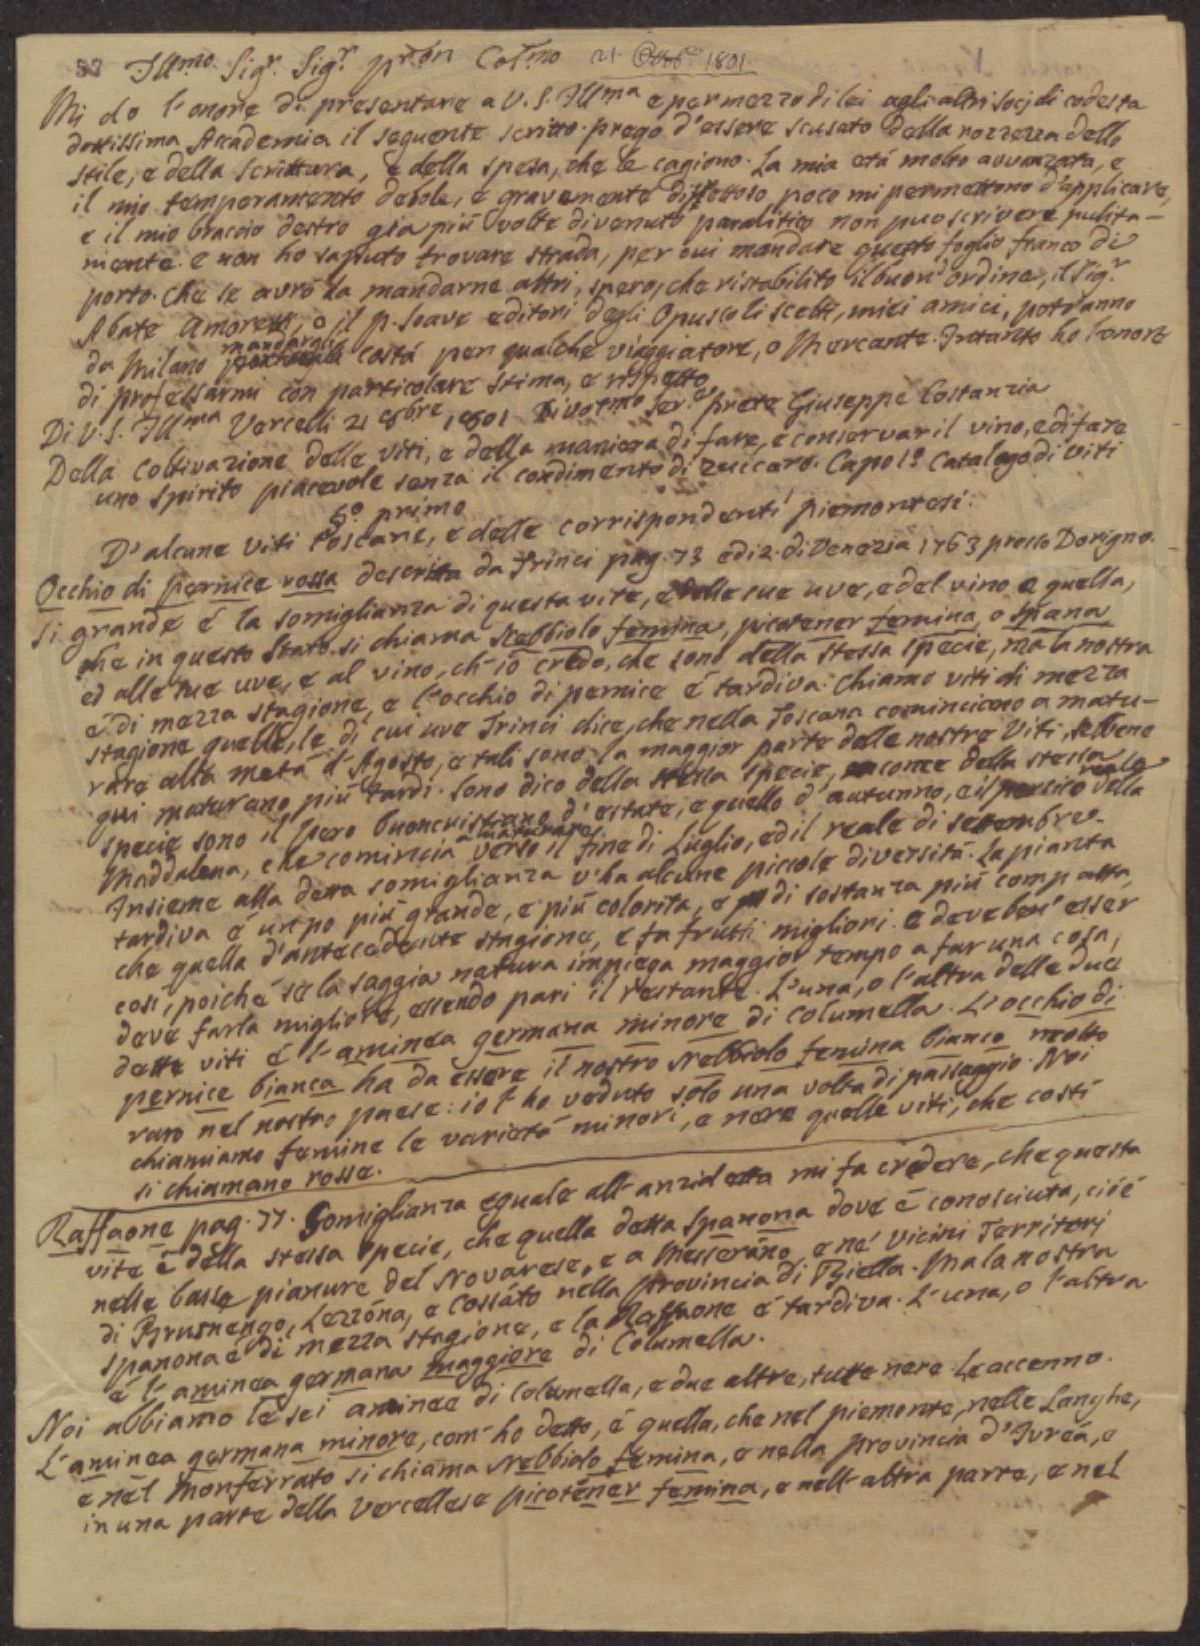 82 Ill.mo Sig.r Sig.r p.ron Col.mo 21 Ottob.e 1801.
Mi do l'onore di presentare a V. S. Ill.ma e per mezzo di lei agli altri socj di codesta
dottissima Accademia il seguente scritto. prego d'essere scusato della rozzezza dello
stile, e della scrittura, e della spesa, che le cagiono. La mia età molto avvanzata, e
il mio temperamento debole, e gravemente difettoso, poco mi permettono d'applicare,
e il mio braccio destro già più volte divenuto paralitico non può scrivere pulita-
mente. e non ho saputo trovare strada, per cui mandare questo foglio franco di
porto. che se avrò da mandarne altri, spero, che ristabilito il buon' ordine, il Sig.r
Abate Amoretti, o il p. Soave editori degli Opuscoli scelti, miei amici, potranno
da Milano mandargli costà per qualche viaggiatore, o Mercante. Intanto ho l'onore
di professarmi con particolare stima, e rispetto
Di V. S. Ill.ma Vercelli 21 8bre 1801 Divot.mo Ser.e prete Giuseppe Costanzia
Della coltivazione delle viti, e della maniera di fare, e conservar il vino, e di fare
uno spirito piacevole senza il condimento di zuccaro. Capo 1.o Catalogo di viti
§.o primo
D'alcune viti toscane, e delle corrispondenti piemontesi.
Occhio di pernice rossa descritta da Trinci pag. 73 ediz. di Venezia 1763 presso Dorigno.
Si grande è la somiglianza di questa vite, e delle sue uve, e del vino a quella,
che in questo Stato si chiama Nebbiolo femina, picotener femina, o spana
ed alle sue uve, e al vino, ch'io credo, che sono della stessa specie, ma la nostra
è di mezza stagione, e l'occhio di pernice è tardiva. Chiamo viti di mezza
stagione quelle, le di cui uve Trinci dice, che nella Toscana cominciano a matu-
rare alla metà d'Agosto, e tali sono la maggior parte delle nostre Viti, sebbene
qui maturano più tardi. Sono dico della stessa specie, come della stessa
specie sono il pero buoncristiano d'estate, e quello d'autunno, e il persico reale della
Maddalena, che comincia a maturare verso il fine di Luglio, ed il reale di settembre.
Insieme alla detta somiglianza v'ha alcune piccole diversità. La pianta
tardiva è un po più grande, e più colorita, e di sostanza più compatta,
che quella d'antecedente stagione, e fa frutti migliori. e deve ben' esser
così, poichè se la saggia natura impiega maggior tempo a far una cosa,
deve farla migliore, essendo pari il restante. L'una, o l'altra delle due
dette viti è l'aminea germana minore di Columella. L'occhio di
pernice bianca ha da essere il nostro Nebbiolo femina bianco molto
raro nel nostro paese: io l'ho veduto solo una volta di passaggio. Noi
chiamiamo femine le varietà minori, e nere quelle viti, che costì
si chiamano rosse.
Raffaone pag. 77. Somiglianza eguale all'anzidetta mi fa credere, che questa
vite è della stessa specie, che quella detta Spanona dove è conosciuta, cioè
nelle basse pianure del Novarese, e a Messeráno, e ne' vicini Territorj
di Brusnengo, Lezzóna, e Cossáto nella provincia di Biella. Ma la nostra
spanona è di mezza stagione, e la Raffaone è tardiva. L'una, o l'altra
è l'aminea germana maggiore di Columella.
Noi abbiamo le sei aminee di Columella, e due altre, tutte nere. Le accenno.
L'aminea germana minore, com'ho detto, è quella, che nel piemonte, nelle Langhe,
e nel Monferrato si chiama Nebbiolo femina, e nella provincia d'Ivrea, e
in una parte della Vercellese picoténer femina, e nell'altra parte, e nel